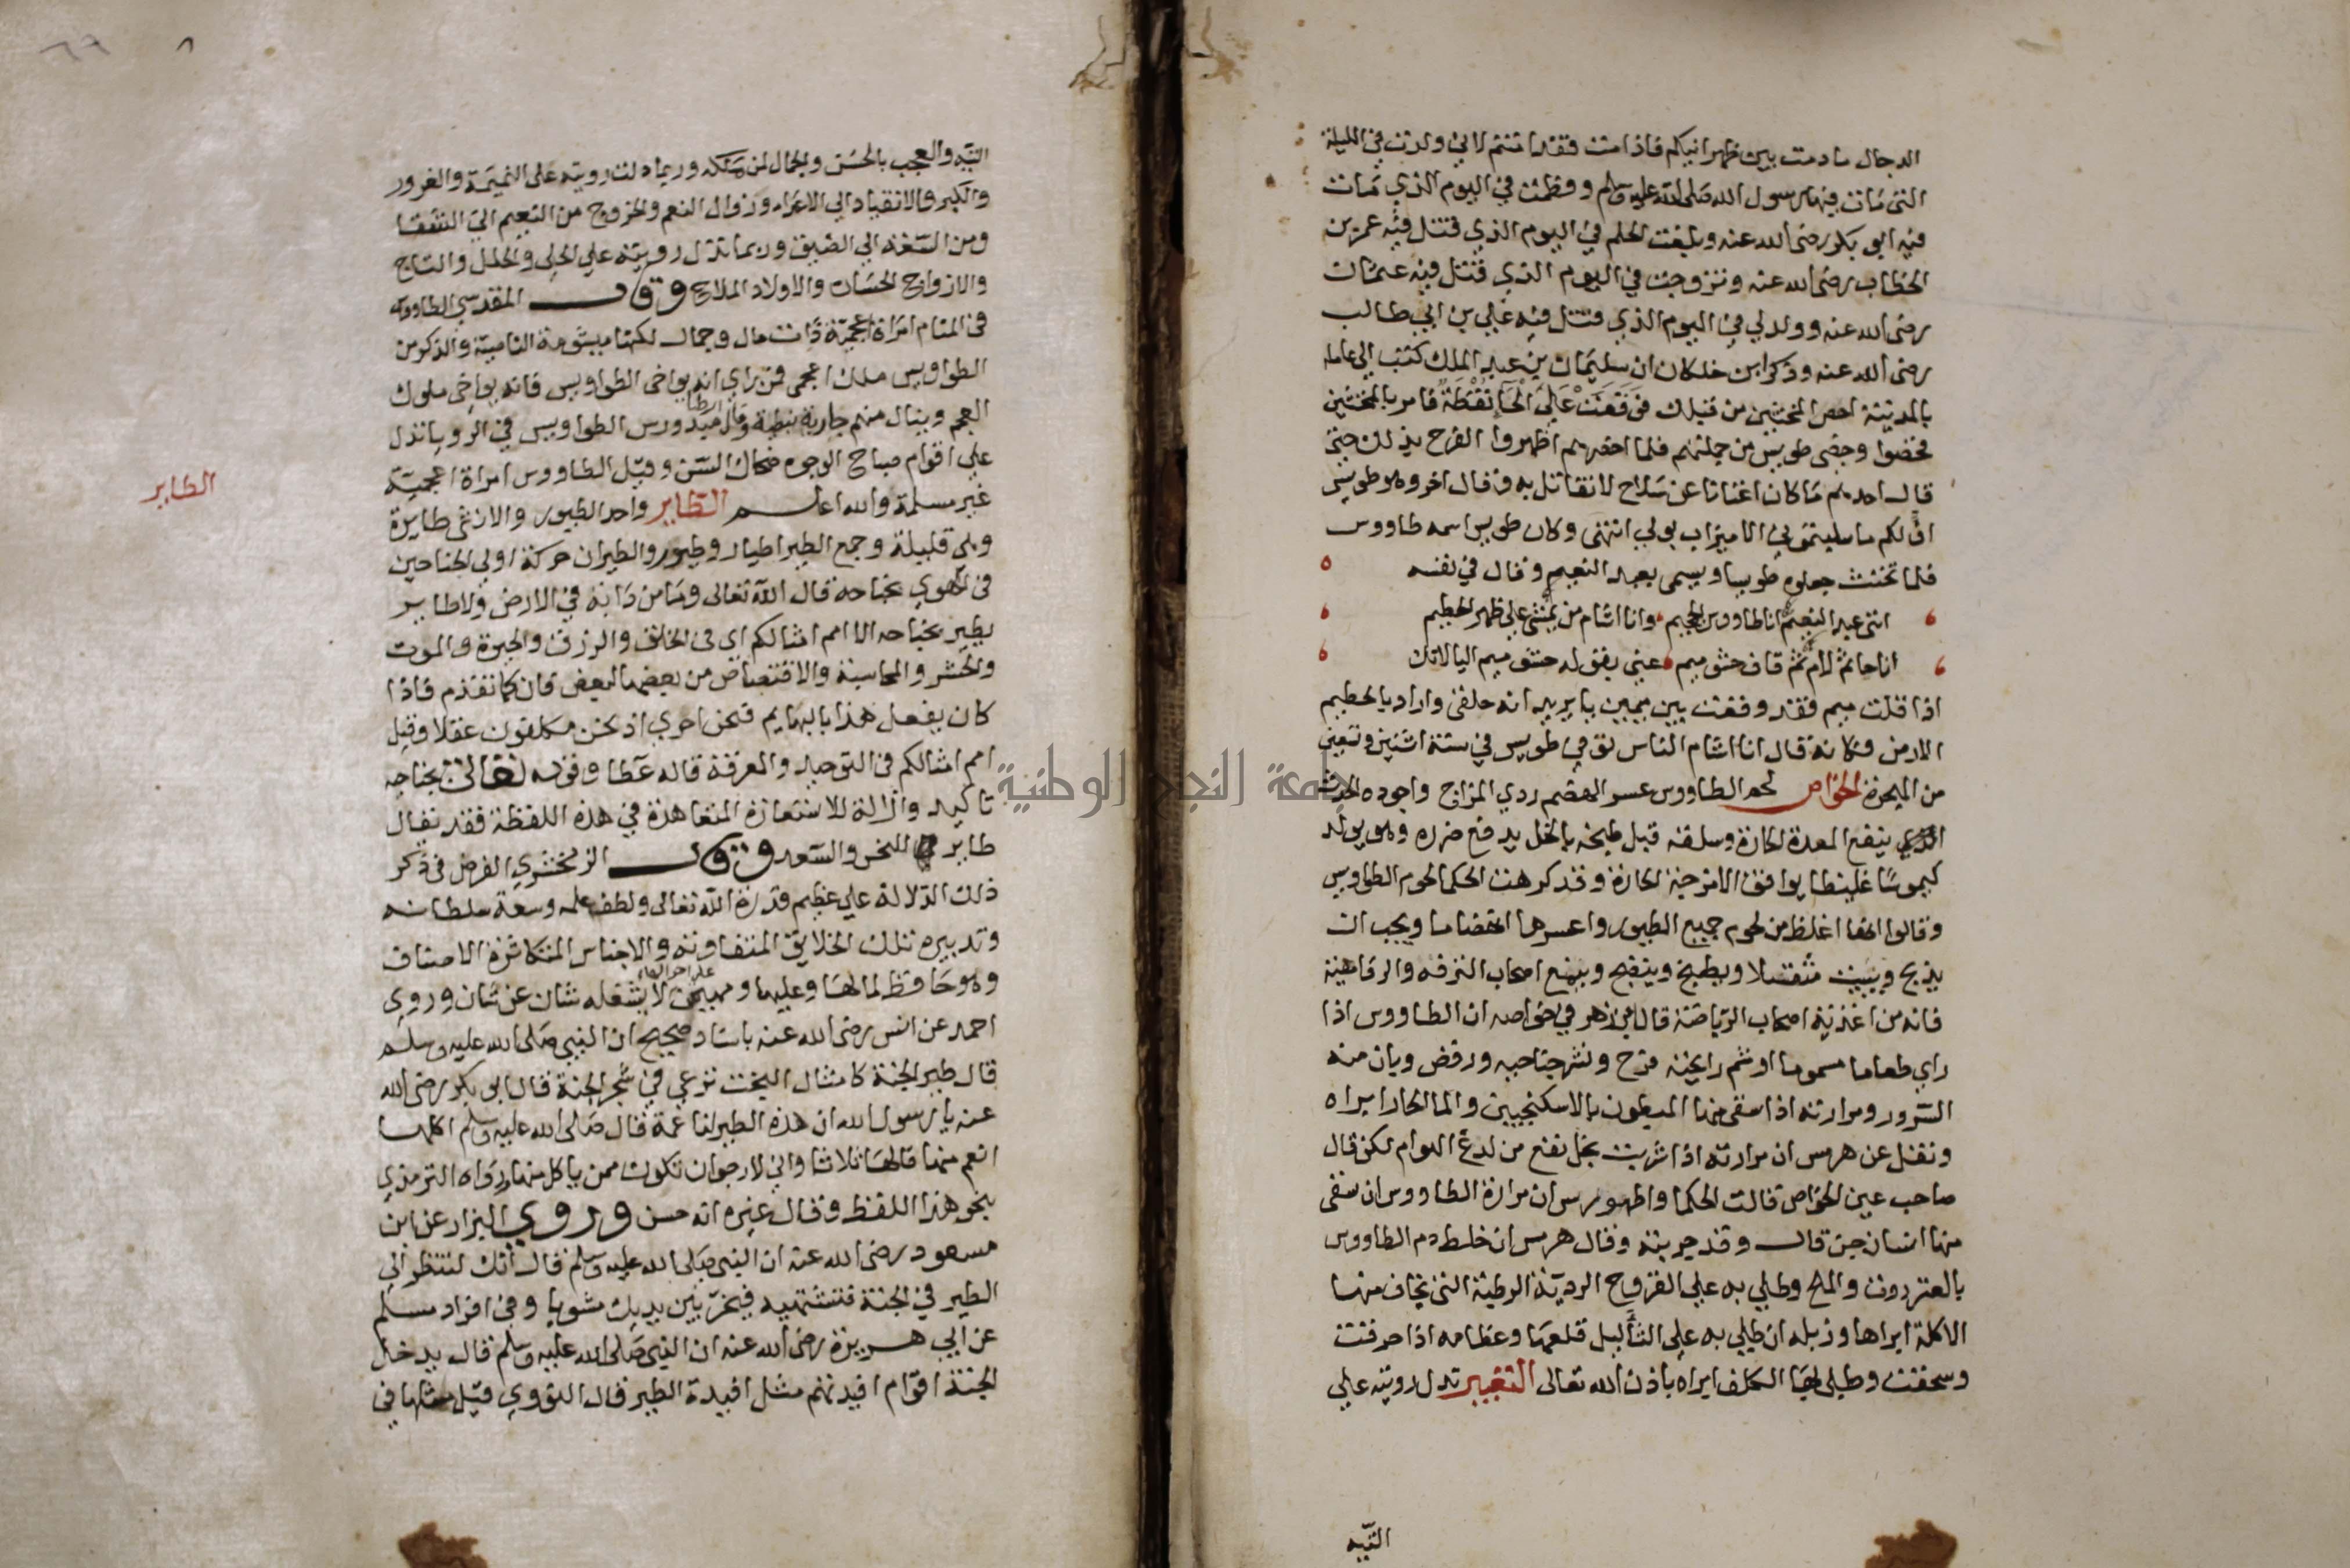 الدجال مادمت بين ظهرانيكم فاذا مت فقد امنتم لاني ولدت في الليلة
التي مات فيها رسول الله صلى الله عليه وسلم وفطمت في اليوم الذي مات
فيه ابو بكر رضي الله عنه وبلغت الحلم في اليوم الذي قتل فيه عمر بن
الخطاب رضي الله عنه وتزوجت في اليوم الذي قتل فيه عثمان
رضي الله عنه وولد لي في اليوم الذي قتل فيه علي بن ابي طالب
رضي الله عنه وذكر ابن خلكان ان سليمان بن عبد الملك كتب الي عامله
بالمدينة احص المخنثين من قبلك فوقعت علي الحا نقطة فامر بالمخنثين
فخصوا وخصي طويس من جملتهم فلما اخصيهم اظهروا الفرح بذلك حتي
قال احدهم ما كان اغنانا عن سلاح لا نقاتل به وقال اخر وهو طويس
اف لكم ما سلبتموني الا ميزاب بولي انتهى وكان طويس اسمه طاووس
فلما تخنث جعلوه طويسا ويسمى بعبد النعيم وقال في نفسه
انني عبد النعيم انا طاووس الجحيم وانا اشام من يمشي علي ظهر الحطيم
انا حا ثم لام ثم قاف حشو ميم يعني بقوله حشو ميم اليا لانك
اذا قلت ميم فقد وقعت بين ميمين يا يريد انه حلقي واراد بالحطيم
الارض وكانه قال انا اشام الناس توفي طويس في سنة اثنين وتسعين
من الهجرة الخواص لحم الطاووس عسر الهضم ردي المزاج واجوده الحدث
الذي ينفع المعدة الحارة وسلقه قبل طبخه بالخل يدفع ضرره وهو يولد
كيموسا غليظا يوافق الامزجة الحارة وقد كرهت الحكما لحوم الطواويس
وقالوا انها اغلظ من لحوم جميع الطيور واعسرها انهضاما ويجب ان
يذبح ويبيت مثقلا ويطبخ وينضج ويمنع اصحاب الترفه والرفاهية
فانه من اغذية اصحاب الرياضة قال ابن زهر في خواصه ان الطاووس اذا
راي طعاما مسموما او شم رايحته فرح ونشر جناحيه ورقص وبان منه
السرور ومرارته اذا سقي منها المبطون بالاسكنجبين والما الحار ابراه
ونقل عن هرمس ان مرارته اذا شربت بخل نفع من لدغ الهوام لكن قال
صاحب عين الخواص قالت الحكما واطهورس ان مرارة الطاووس ان سقي
منها انسان جن قال وقد جربته وقال هرمس ان خلط دم الطاووس
بالعنزروت والملح وطلي به علي القروح الردية الرطبة التي يخاف منها
الاكلة ابراها وزبله ان طلي به علي الثآليل قلعها وعظامه اذا حرقت
وسحقت وطلي بها الكلف ابراه باذن الله تعالى التعبير تدل رويته علي
التيه
التيه والعجب بالحسن والجمال لمن ملكه وربما دلت رويته على النميمة والغرور
والكبر والانقياد الي الاعداء وزوال النعم والخروج من النعيم الي الشقا
ومن السعة الي الضيق وربما تدل رويته علي الحلي والحلل والتاج
والازواج الحسان والاولاد الملاح وقال المقدسي الطاووس
في المنام امراة اعجمية ذات مال وجمال لكنها ميشومة الناصية والذكر من
الطواويس ملك اعجمي فمن راي انه يواخي الطواويس فانه يواخي ملوك
العجم وينال منهم جارية نبطية وقال ارطاميدورس الطواويس في الرويا تدل
علي اقوام صباح الوجوه ضحاك السن وقيل الطاووس امراة اعجمية
غير مسلمة والله اعلم الطاير واحد الطيور والانثى طايرة
الطاير
وهي قليلة وجمع الطير اطيار وطيور والطيران حركة اولي الجناحين
في الهوي بجناحه قال الله تعالى وما من دابة في الارض ولا طاير
يطير بجناحيه الا امم امثالكم اي في الخلق والرزق والحيوة والموت
والحشر والمحاسبة والاقتصاص من بعضها لبعض فان كما تقدم فاذا
كان يفعل هذا بالبهايم فنحن احري اذ نحن مكلفون عقلا وقيل
امم امثالكم في التوحيد والمعرفة قاله عطا وقوله تعالى بجناحيه
تاكيد وازالة للاستعارة المتعاهدة في هذه اللفظة فقد يقال
طاير للنحس والسعد وقال الزمخشري الغرض في ذكر
ذلك الدلالة علي عظيم قدرة الله تعالى ولطف علمه وسعة سلطانه
وتدبيره تلك الخلايق المتفاوتة والاجناس المتكاثرة الاصناف
وهو حافظ لما لها وعليها ومهيمن علي احوالها لا يشغله شان عن شان وروي
احمد عن انس رضي الله عنه باسناد صحيح ان النبي صلى الله عليه وسلم
قال طير الجنة كامثال البخت ترعي في شجر الجنة قال ابو بكر رضي الله
عنه يا رسول الله ان هذه الطير لناعمة قال صلى الله عليه وسلم اكلها
انعم منها قالها ثلاثا واني لارجو ان تكون ممن ياكل منها رواه الترمذي
بنحو هذا اللفظ وقال غيره انه حسن وروي البزار عن ابن
مسعود رضي الله عنه ان النبي صلى الله عليه وسلم قال انك لتنظر الي
الطير في الجنة فتشتهيه فيخر بين يديك مشويا وفي افراد مسلم
عن ابي هريرة رضي الله عنه ان النبي صلى الله عليه وسلم قال يدخل
الجنة اقوام افيدتهم مثل افيدة الطير قال النووي قيل مثلها في
جامعة النجاح الوطنية